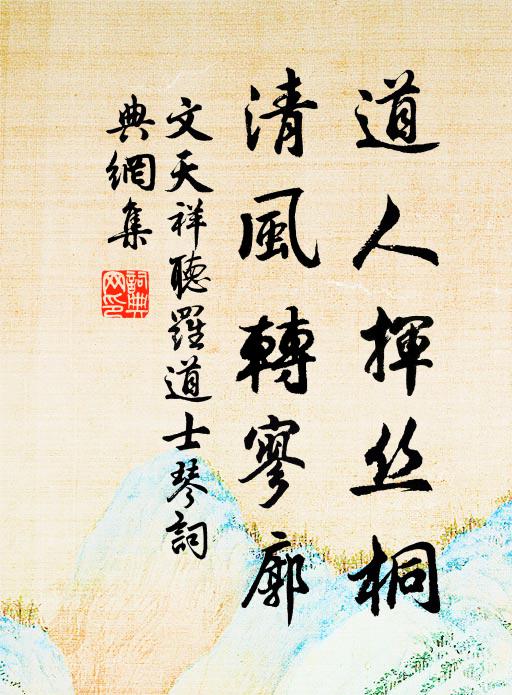 道人揮丝桐
清風轉寥廓
文天祥聽羅道士琴詞
典網集
詞典網印